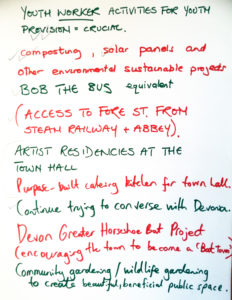 YOUTH WORKER ACTIVITIES FOR YOUTH
PROVISION = CRUCIAL.
composting, solar panels and
other environmental sustainable projects
BOB THE BUS equivalent
(ACCESS TO FORE ST. FROM
STEAM RAILWAY + ABBEY).
ARTIST RESIDENCIES AT THE
TOWN HALL
Purpose-built catering kitchen for town hall.
Continue trying to converse with Devon
Devon Greater Horseshoe Bat Project
(encouraging the town to become a 'Bat Town')
Community gardening / wildlife gardening
to create beautiful, beneficial public space.